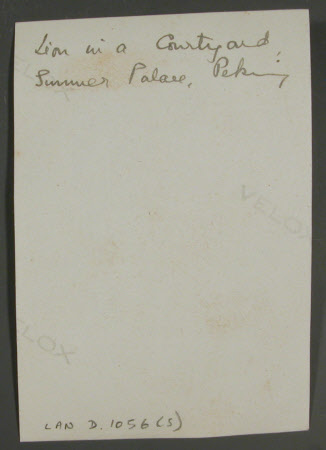 Lion in a Courtyard,
Summer Palace, Peking
VELOX
VELOX
VELOX
LAN D. 1056 (S)